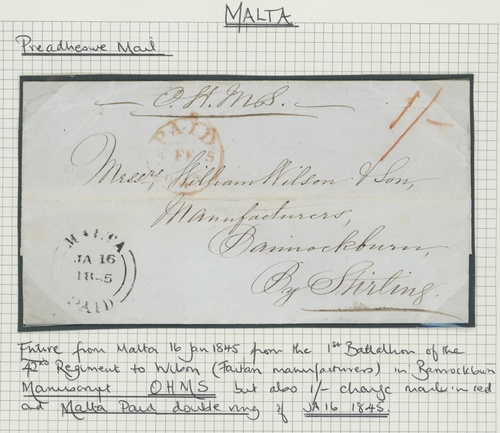 MALTA
Preadhesive Mail
O.H.M.S.
1/-
PAID
FE 5
Messrs William Wilson & Son,
Manufacturers,
Bannockburn,
By Stirling.
MALTA
JA 16
1845
PAID
Entire from Malta 16 Jan 1845 from the 1st Battalion of the
42nd Regiment to Wilson (Tartan manufacturers) in Bannockburn
Manuscript OHMS but also 1/- charge marked in red
and Malta Paid double ring of JA 16 1845.